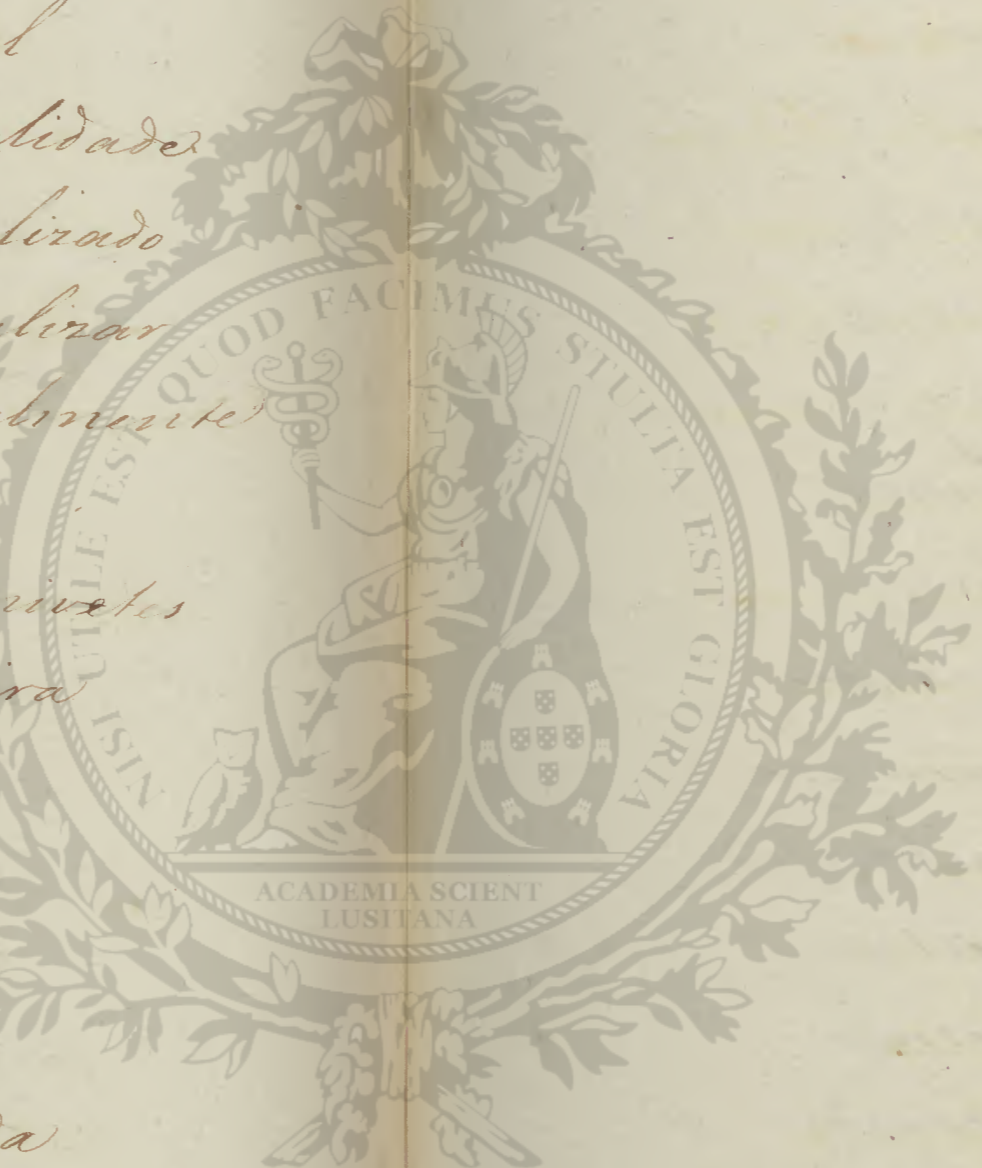 l
lidade
lizado
lizar
lmente
nivetes
ra
a
NISI UTILE EST QUOD FACIMUS STULTA EST GLORIA
ACADEMIA SCIENT
LUSITANA